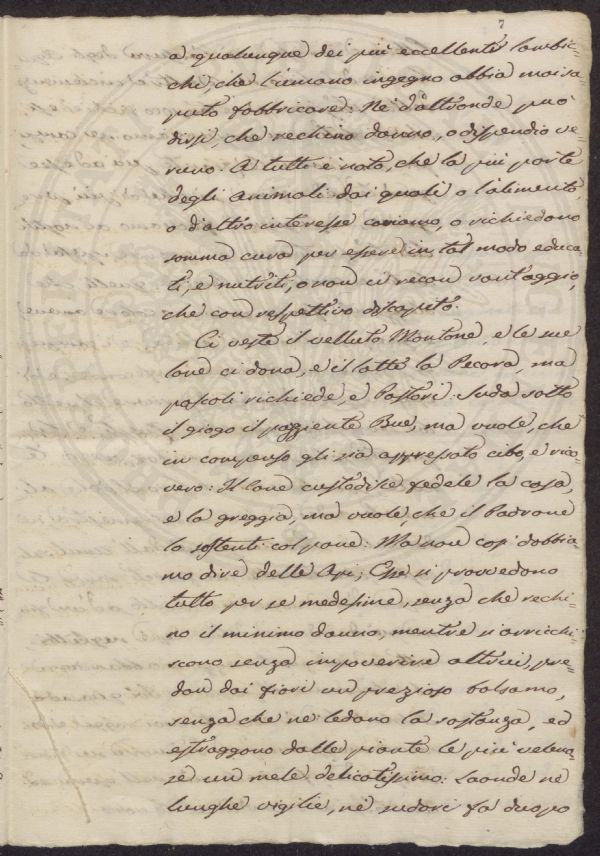 7
a qualunque dei più eccellenti lambic-
chi, che l'umano ingegno abbia mai sa-
puto fabbricare: Nè d'altronde può
dirsi, che rechino danno, o dispendio ve-
runo: A tutti è noto, che la più parte
degli animali dai quali o l'alimento,
o d'altro interesse caviamo, o richiedono
somma cura per essere in tal modo educa-
ti, e nutriti, o non ci recan vantaggio,
che con respettivo discapito.
Ci veste il velluto Montone, e le sue
lane ci dona, e il latte la Pecora, ma
pascoli richiede, e Pastori. Suda sotto
il giogo il pazziente Bue, ma vuole, che
in compenso gli sia appressato cibo, e rico-
vero: Il Cane custodisce fedele la casa,
e la greggia, ma vuole, che il Padrone
lo sostenti col pane: Ma non così dobbia-
mo dire delle Api; Esse si provvedono
tutto per se medesime, senza che rechi-
no il minimo danno, mentre si arricchi-
scono senza impoverire altrui, pre-
dan dai fiori un prezioso balsamo,
senza che ne ledano la sostanza, ed
estraggono dalle piante le più veleno-
se un mele delicatissimo: Laonde nè
lunghe vigilie, nè sudori fa duopo